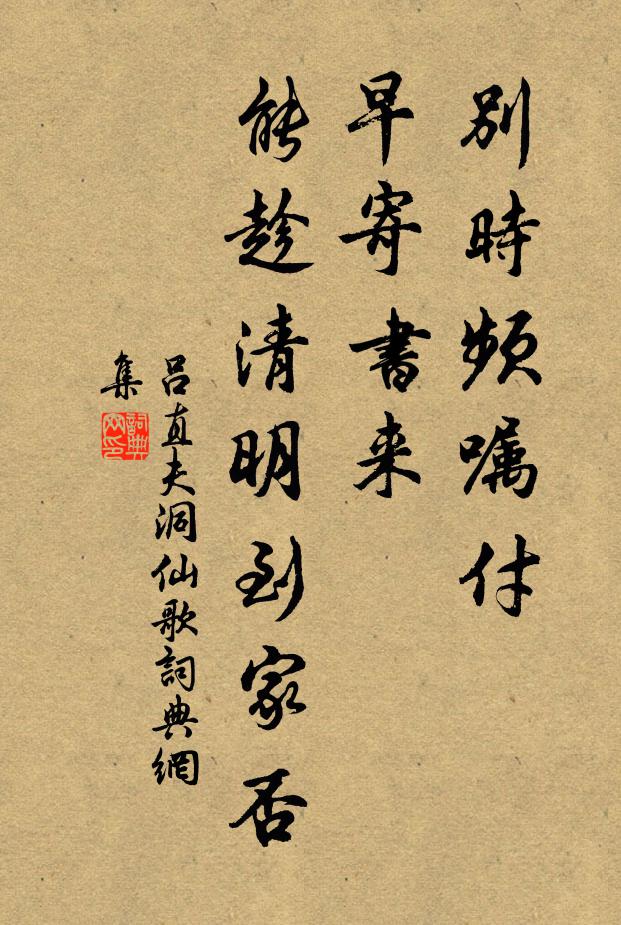 别時频嘱付
早寄書来
能趁清明到家否
吕直夫洞仙歌詞典網
集
詞典
网印